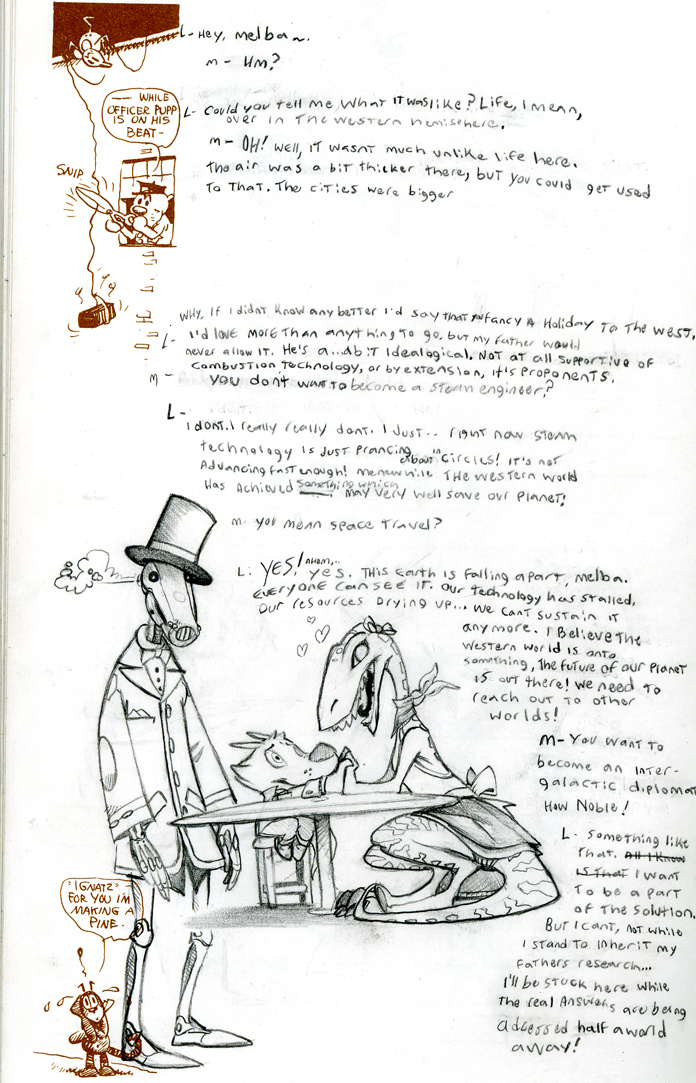 L- Hey, melba~.
m- HM?
—— WHILE
OFFICER PUPP
IS ON HIS
BEAT-
SNIP
L- Could you tell me what it was like? Life, I mean,
over in the western hemisphere.
m- OH! Well, it wasnt much unlike life here.
the air was a bit thicker there, but you could get used
to that. The cities were bigger
why, if I didnt know any better I'd say that you fancy a Holiday to the west.
L- I'd love more than anything to go, but my father would
never allow it. He's a...a bit Idealogical. Not at all supportive of
combustion technology, or by extension, it's proponents.
m- you don't want to become a steam engineer?
L-
I dont. I really really dont. I just... right now steam
technology is just prancing about in circles! it's not
Advancing fast enough! meanwhile the western world
has achieved something which may very well save our planet!
m- you mean space travel?
L: YES! AHEM,.. yes. This earth is falling apart, melba.
everyone can see it. our technology has stalled,
our resources drying up... we cant sustain it
anymore. I Believe the
western world is onto
something, the future of our planet
is out there! we need to
reach out to other
worlds!
m- You want to
become an inter-
galactic diplomat
How Noble!
L- something like
that. All I know
is that I want
to be a part
of the solution.
But I cant, not while
I stand to inherit my
fathers research...
I'll be stuck here while
the real answers are being
adressed half a world
away!
"IGNATZ"
FOR YOU I'M
MAKING A
PINE.